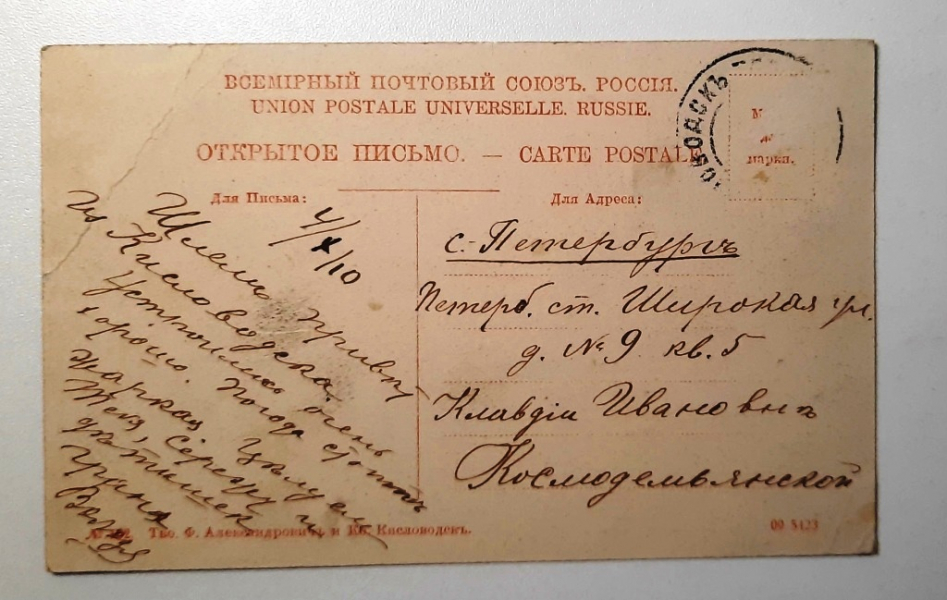 ВСЕМІРНЫЙ ПОЧТОВЫЙ СОЮЗЪ. РОССІЯ.
UNION POSTALE UNIVERSELLE. RUSSIE.
ОТКРЫТОЕ ПИСЬМО. — CARTE POSTALE
марки.
Для Письма:
4/X/10
Шлемъ привѣтъ
изъ Кисловодска.
Устроились очень
хорошо. Погода стоитъ
жаркая. Цѣлуемъ
Тебя, Сережу и
дѣтишекъ
Для Адреса:
С.-Петербургъ
Петерб. ст. Широкая ул.
д. № 9 кв. 5
Клавдіи Ивановнѣ
Космодемьянской
Тво. Ф. Александровичъ и Ко. Кисловодскъ.
09 8423